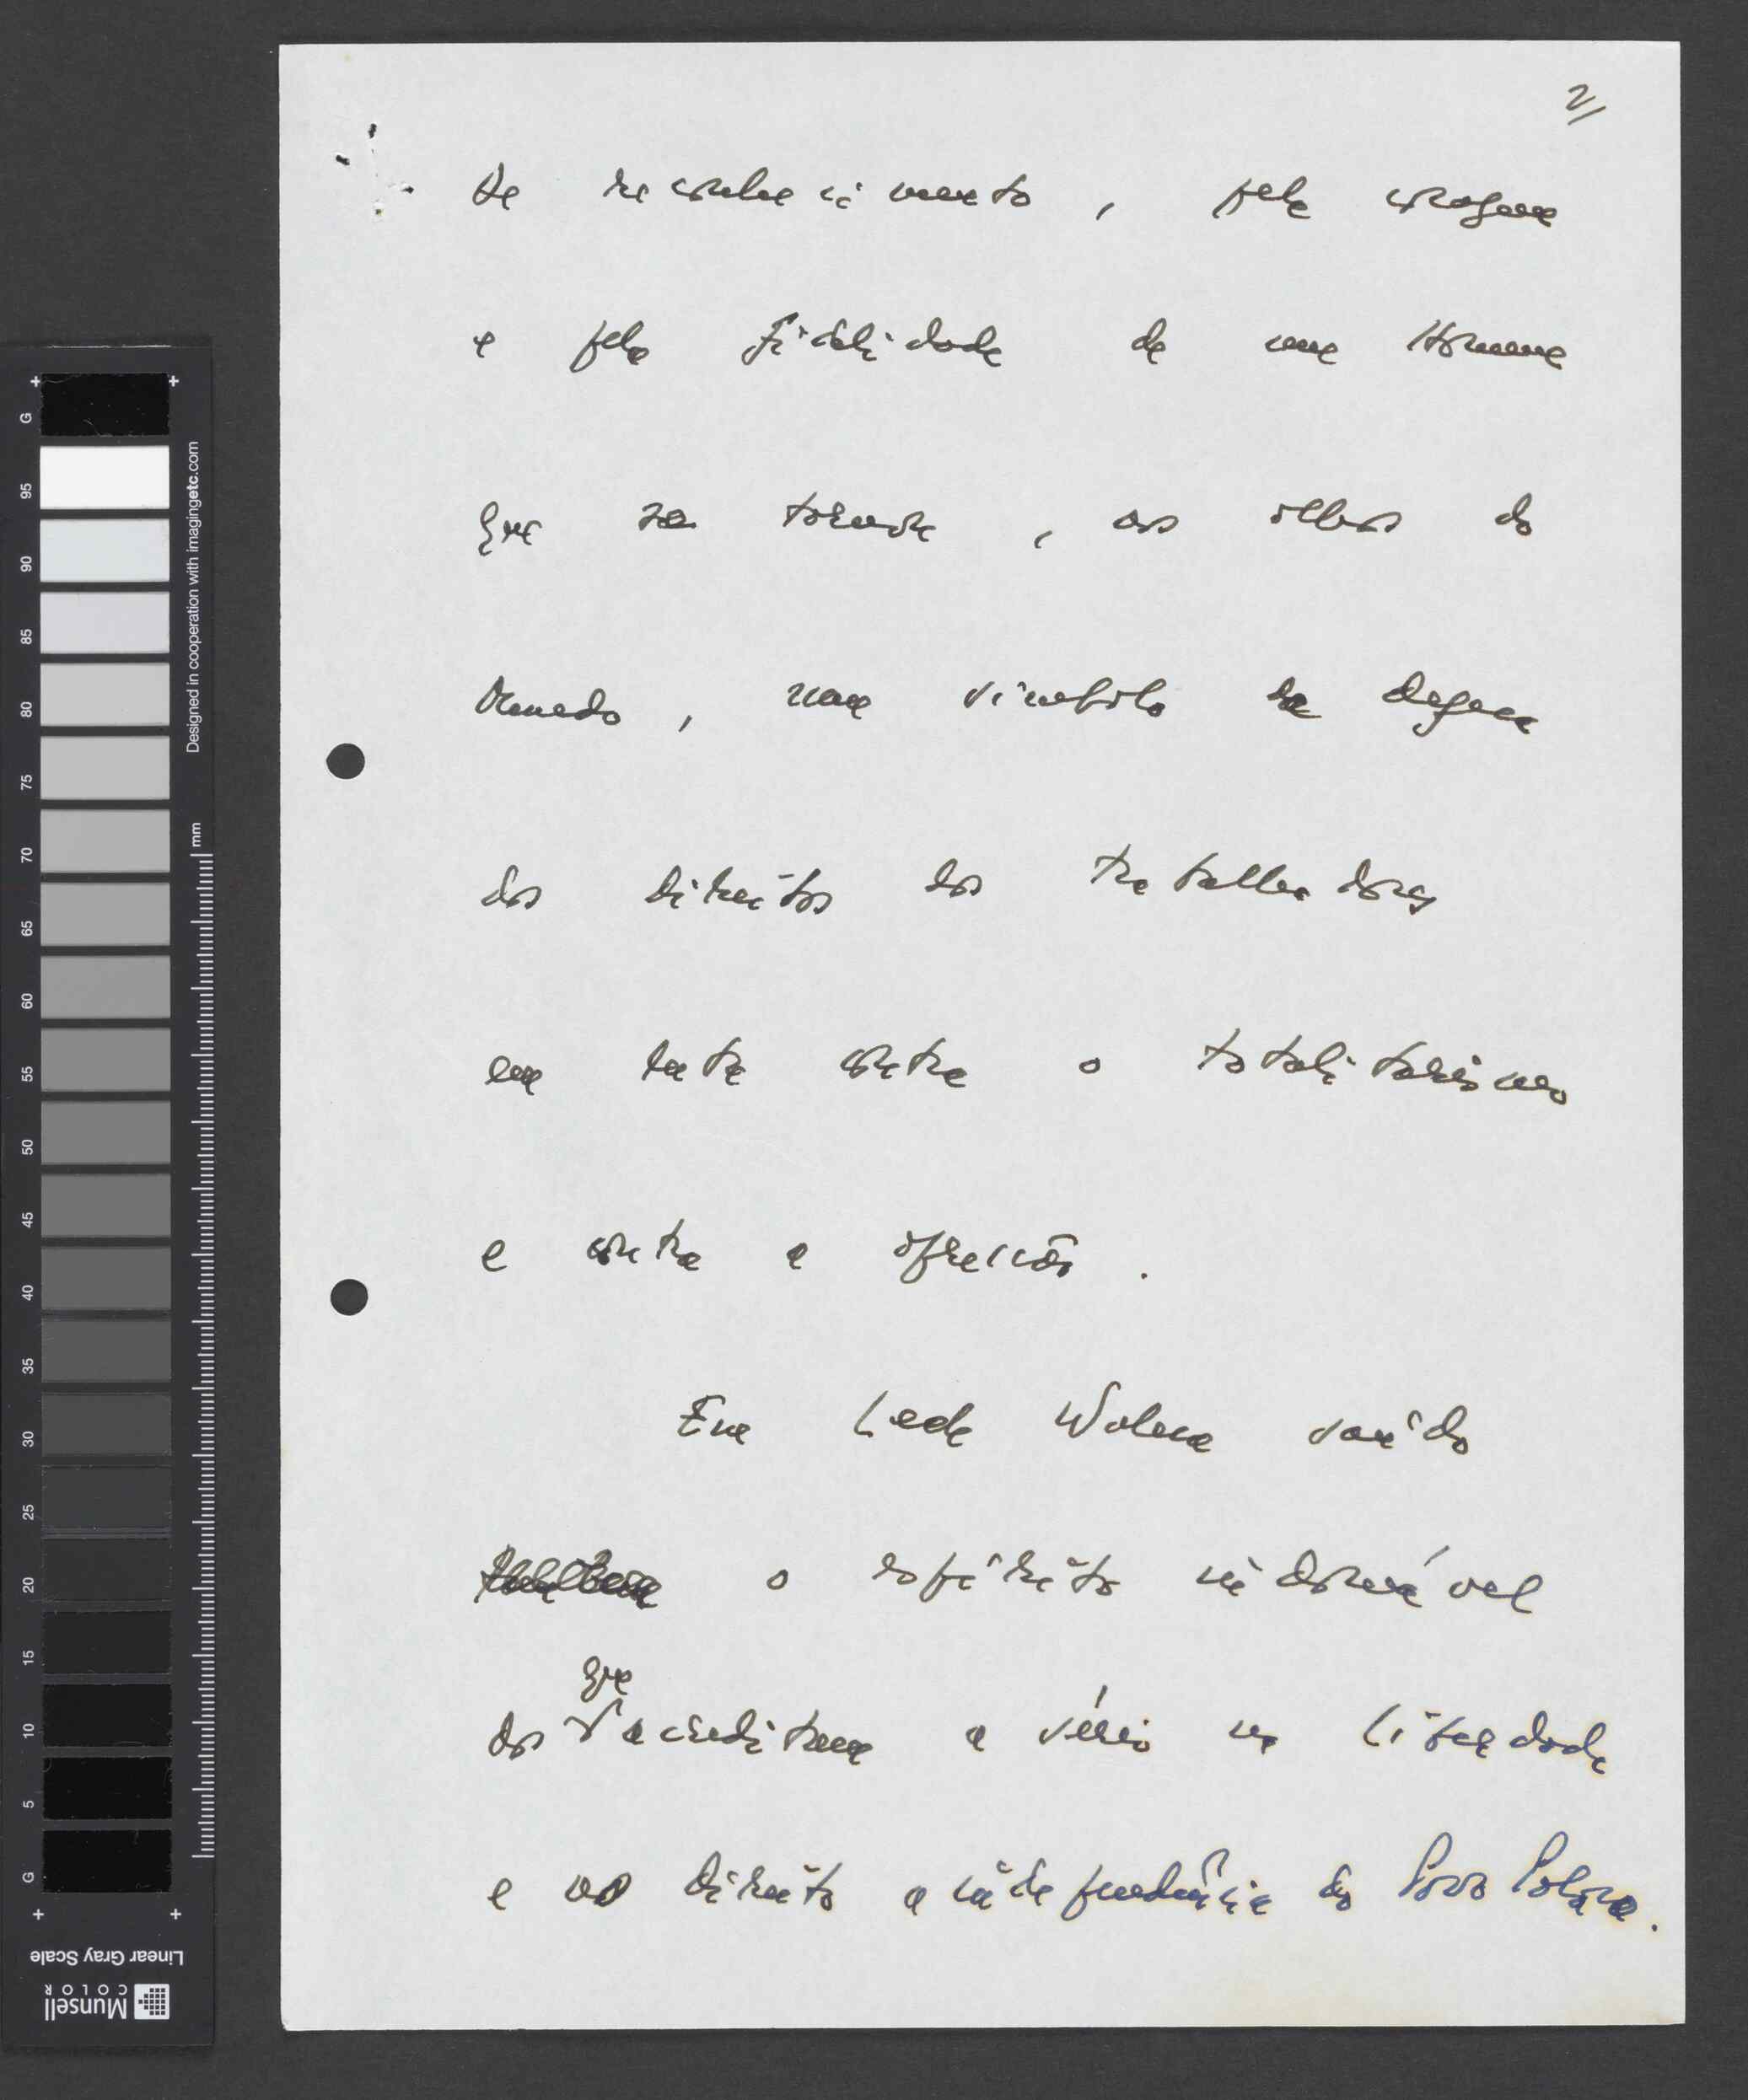 2/
de reconhecimento, pela coragem
e pela fidelidade de um Homem
que se tornou, aos olhos do
Mundo, num símbolo da defesa
dos direitos dos trabalhadores
em luta contra o totalitarismo
e contra a opressão.
Em Lech Walesa saúdo
o espírito indomável
que
dos acreditam a sério na liberdade
e no direito a independência do Povo Polaco.
G
95
90
85
80
75
70
65
60
55
50
45
40
35
30
25
20
15
10
5
G
mm
Designed in cooperation with imagingetc.com
Linear Gray Scale
Munsell
COLOR